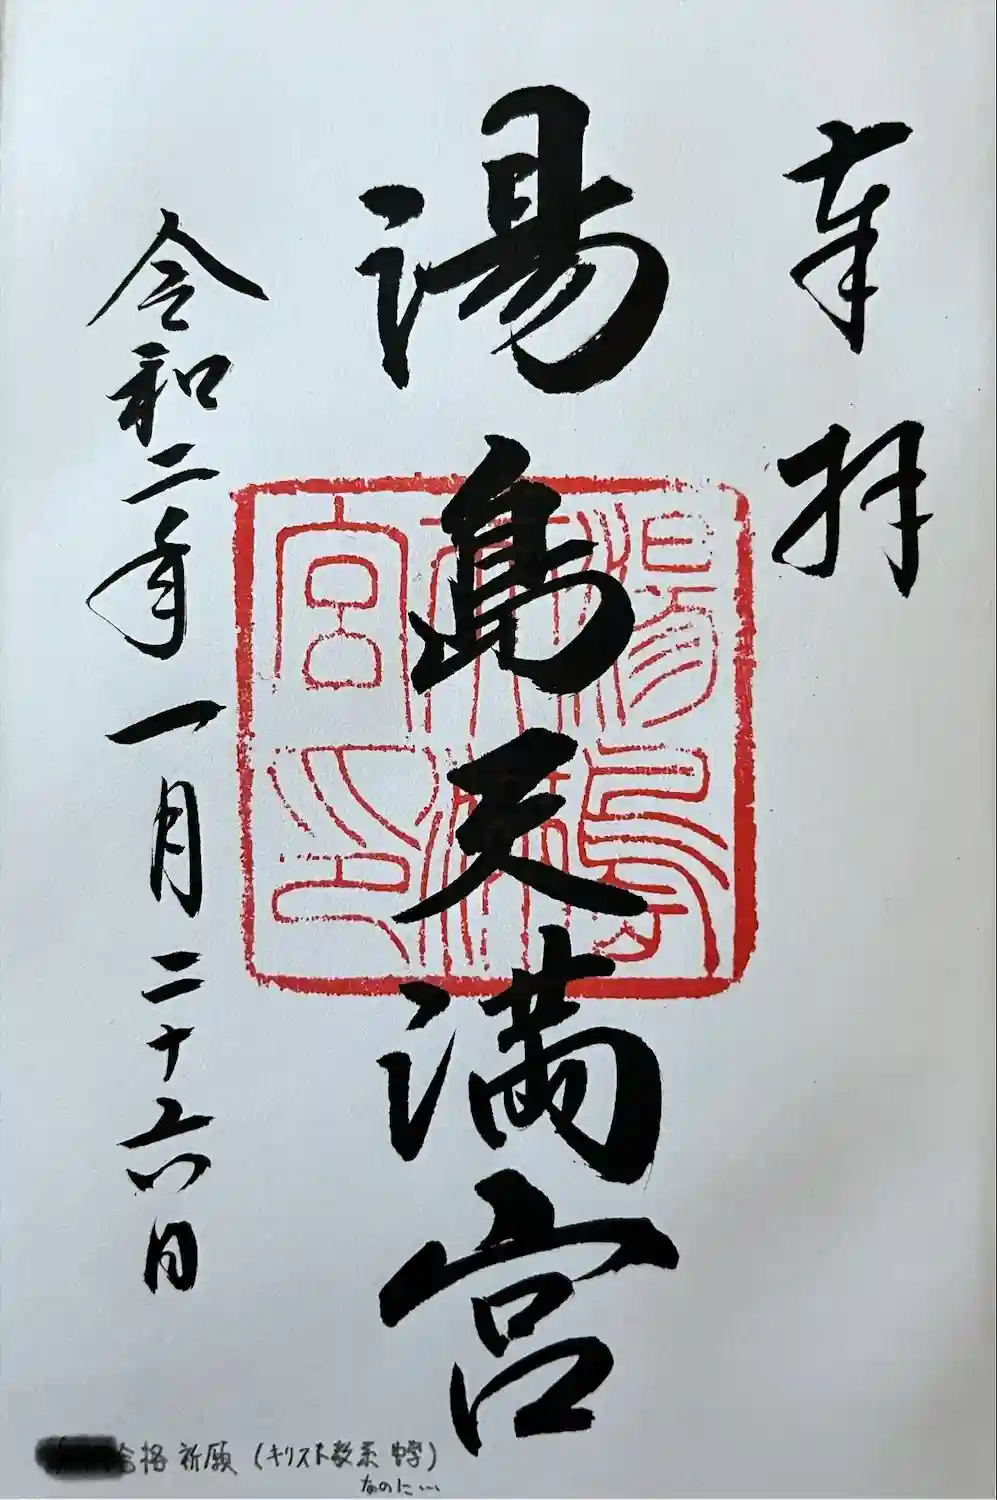 奉拝
湯島天満宮
湯島天神宮印
令和二年一月二十六日
合格祈願(キリスト教系中学)
なのに…